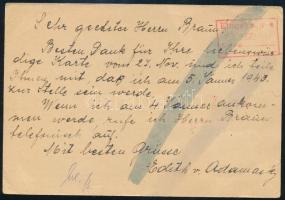 Sehr geehrter Herr Braun,
Besten Dank für Ihre liebenswür
dige Karte vom 27. Nov. und ich teile
Ihnen mit daß ich am 5. Jänner 1943.
zur Stelle sein werde.
Wenn ich am 4 Jänner ankom-
men werde rufe ich Herrn Braun
telefonisch auf.
Mit besten Grüsse
Edith v. Adamasy